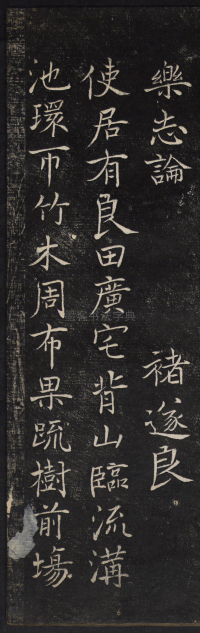 樂志論 褚遂良
使居有良田廣宅背山臨流溝
池環帀竹木周布果蔬樹前場